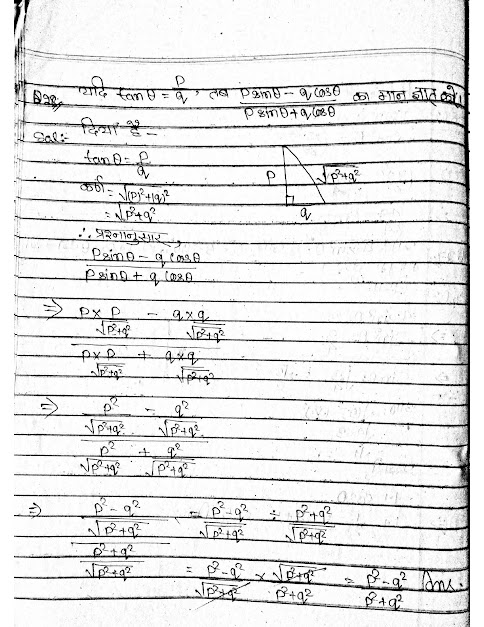 प्रश्न, यदि tanθ = p/q, तब (p sinθ - q cosθ)/(p sinθ + q cosθ) का मान ज्ञात करें।
Sol:- दिया है -
tanθ = p/q
कर्ण = √(p)²+(q)²
= √p²+q²
p √p²+q²
q
∴ प्रश्नानुसार,
(p sinθ - q cosθ)/(p sinθ + q cosθ)
⇒ (p×p/√p²+q² - q×q/√p²+q²)/(p×p/√p²+q² + q×q/√p²+q²)
⇒ (p²/√p²+q² - q²/√p²+q²)/(p²/√p²+q² + q²/√p²+q²)
⇒ ((p²-q²)/√p²+q²)/((p²+q²)/√p²+q²) = (p²-q²)/√p²+q² ÷ (p²+q²)/√p²+q²
= (p²-q²)/√p²+q² × √p²+q²/(p²+q²) = (p²-q²)/(p²+q²) Ans.